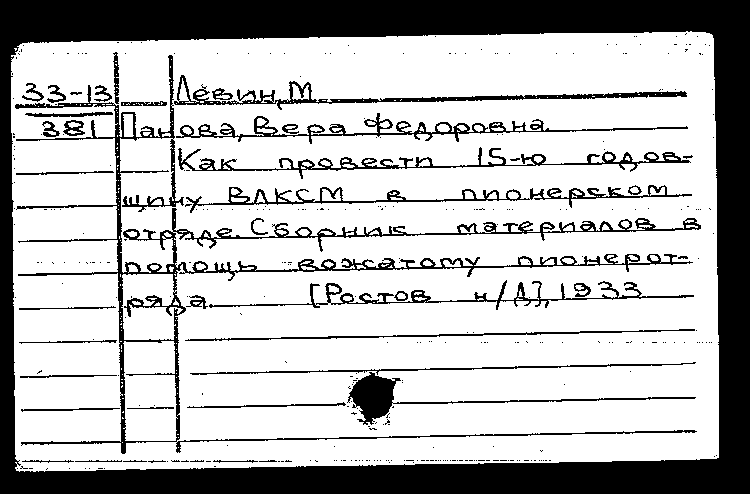 33-13 Левин, М.
381 Панова, Вера Федоровна.
Как провести 15-ю годов-
щину ВЛКСМ в пионерском
отряде. Сборник материалов в
помощь вожатому пионерот-
ряда. [Ростов н/Д], 1933